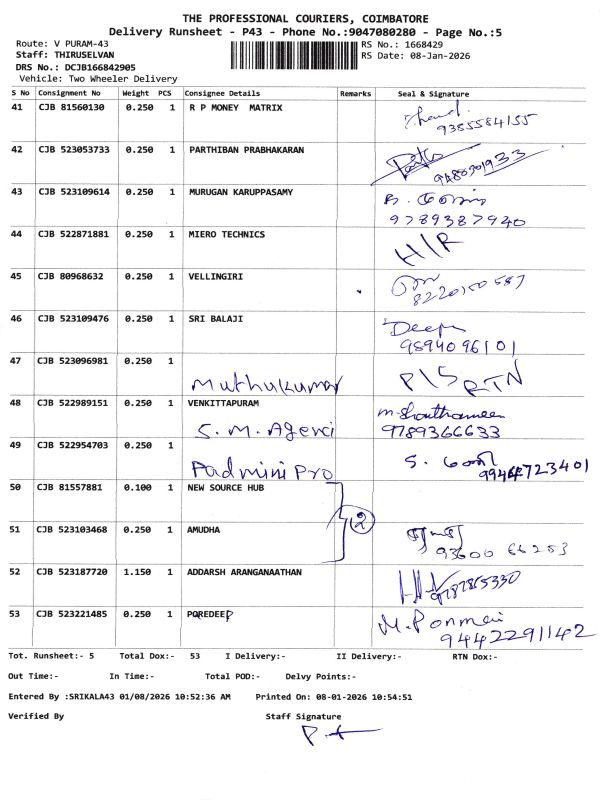 THE PROFESSIONAL COURIERS, COIMBATORE
Delivery Runsheet - P43 - Phone No.:9047080280 - Page No.:5
Route: V PURAM-43
Staff: THIRUSELVAN
DRS No.: DCJB166842905
Vehicle: Two Wheeler Delivery
RS No.: 1668429
RS Date: 08-Jan-2026
S No Consignment No Weight PCS Consignee Details Remarks Seal & Signature
41 CJB 81560130 0.250 1 R P MONEY MATRIX
9355584155
42 CJB 523053733 0.250 1 PARTHIBAN PRABHAKARAN
43 CJB 523109614 0.250 1 MURUGAN KARUPPASAMY
9789387940
44 CJB 522871881 0.250 1 MIERO TECHNICS
45 CJB 80968632 0.250 1 VELLINGIRI
8220150587
46 CJB 523109476 0.250 1 SRI BALAJI
Deepa
9894096101
47 CJB 523096981 0.250 1
Muthukumar P/S RTN
48 CJB 522989151 0.250 1 VENKITTAPURAM
S. M. Agenci 9789366633
49 CJB 522954703 0.250 1
Padmini Pro 9944723401
50 CJB 81557881 0.100 1 NEW SOURCE HUB
2
51 CJB 523103468 0.250 1 AMUDHA
93600 66253
52 CJB 523187720 1.150 1 ADDARSH ARANGANAATHAN
9787865330
53 CJB 523221485 0.250 1 POREDEEP
M. Ponmani
9442291142
Tot. Runsheet:- 5 Total Dox:- 53 I Delivery:- II Delivery:- RTN Dox:-
Out Time:- In Time:- Total POD:- Delvy Points:-
Entered By :SRIKALA43 01/08/2026 10:52:36 AM Printed On: 08-01-2026 10:54:51
Verified By Staff Signature